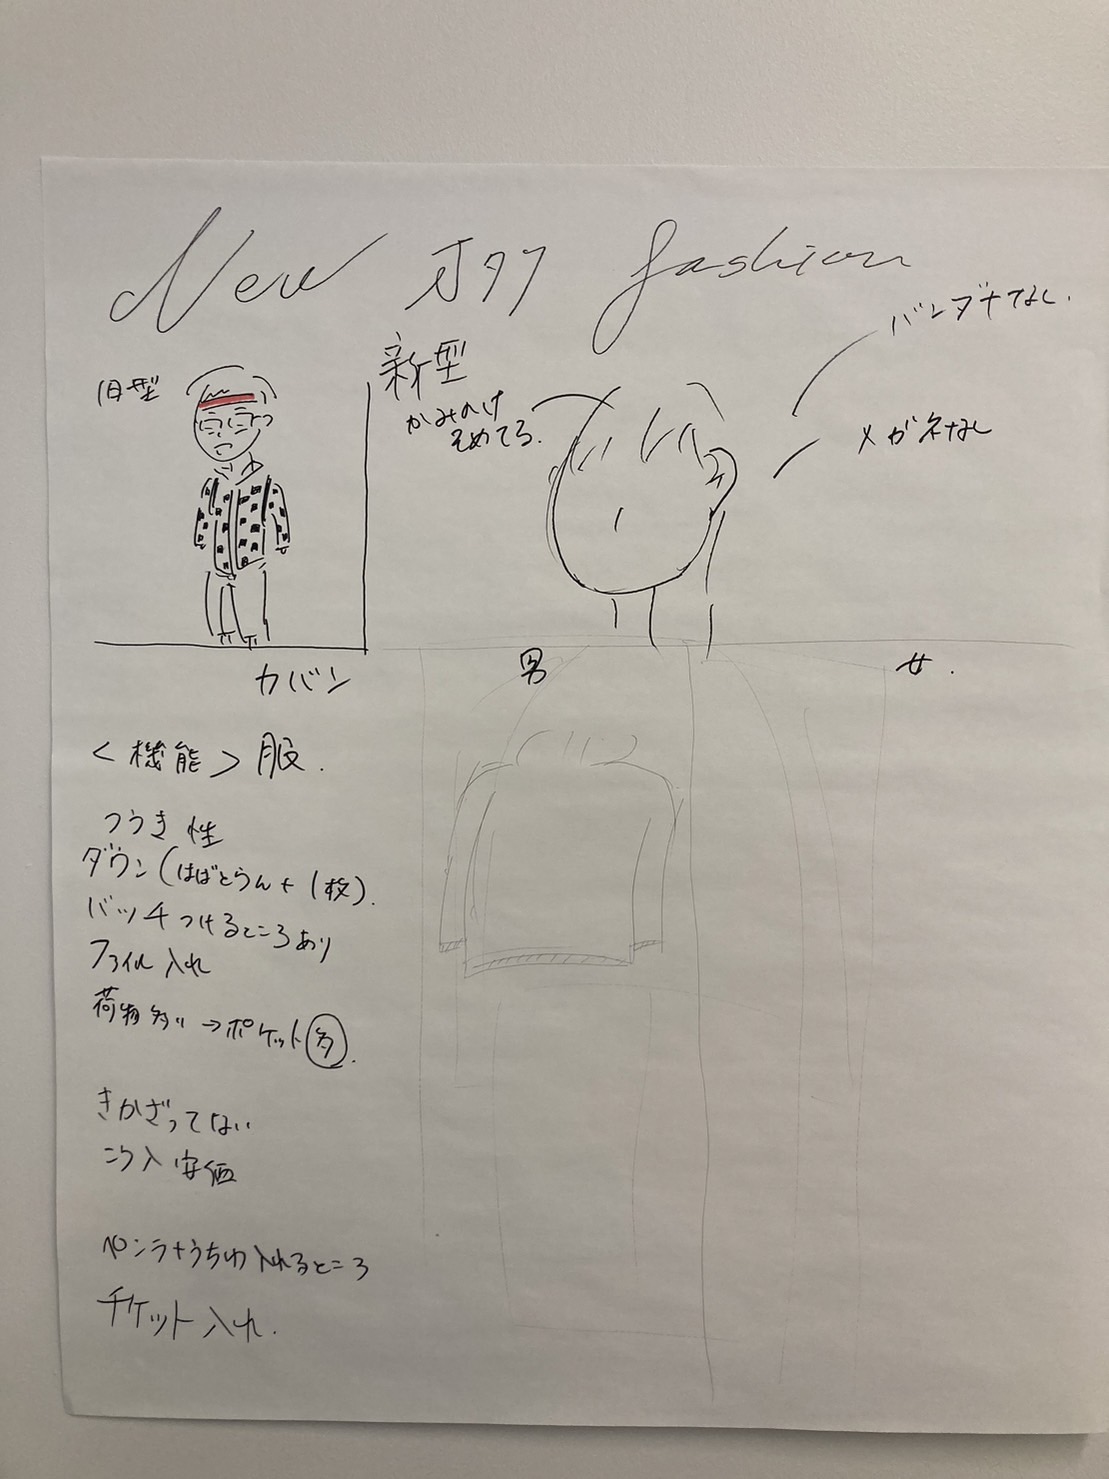 New オタク fashion
旧型
新型
かみのけ
そめてる.
バンダナなし.
メガネなし
男
女.
カバン
<機能>服.
つうき性
ダウン(はばとらん+1枚).
バッチつけるところあり
ファイル入れ
荷物多い→ポケット多.
きかざってない
こう入安価
ペンラ+うちわ入れるところ
チケット入れ.